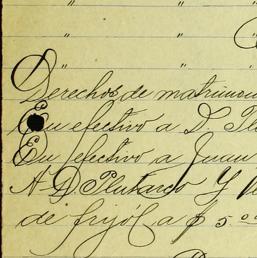 " "
" "
Derechos de matrimon
En efectivo a D. Pl
En efectivo a Juan
A D. Plutarco Y
de frijól a $ 5.00